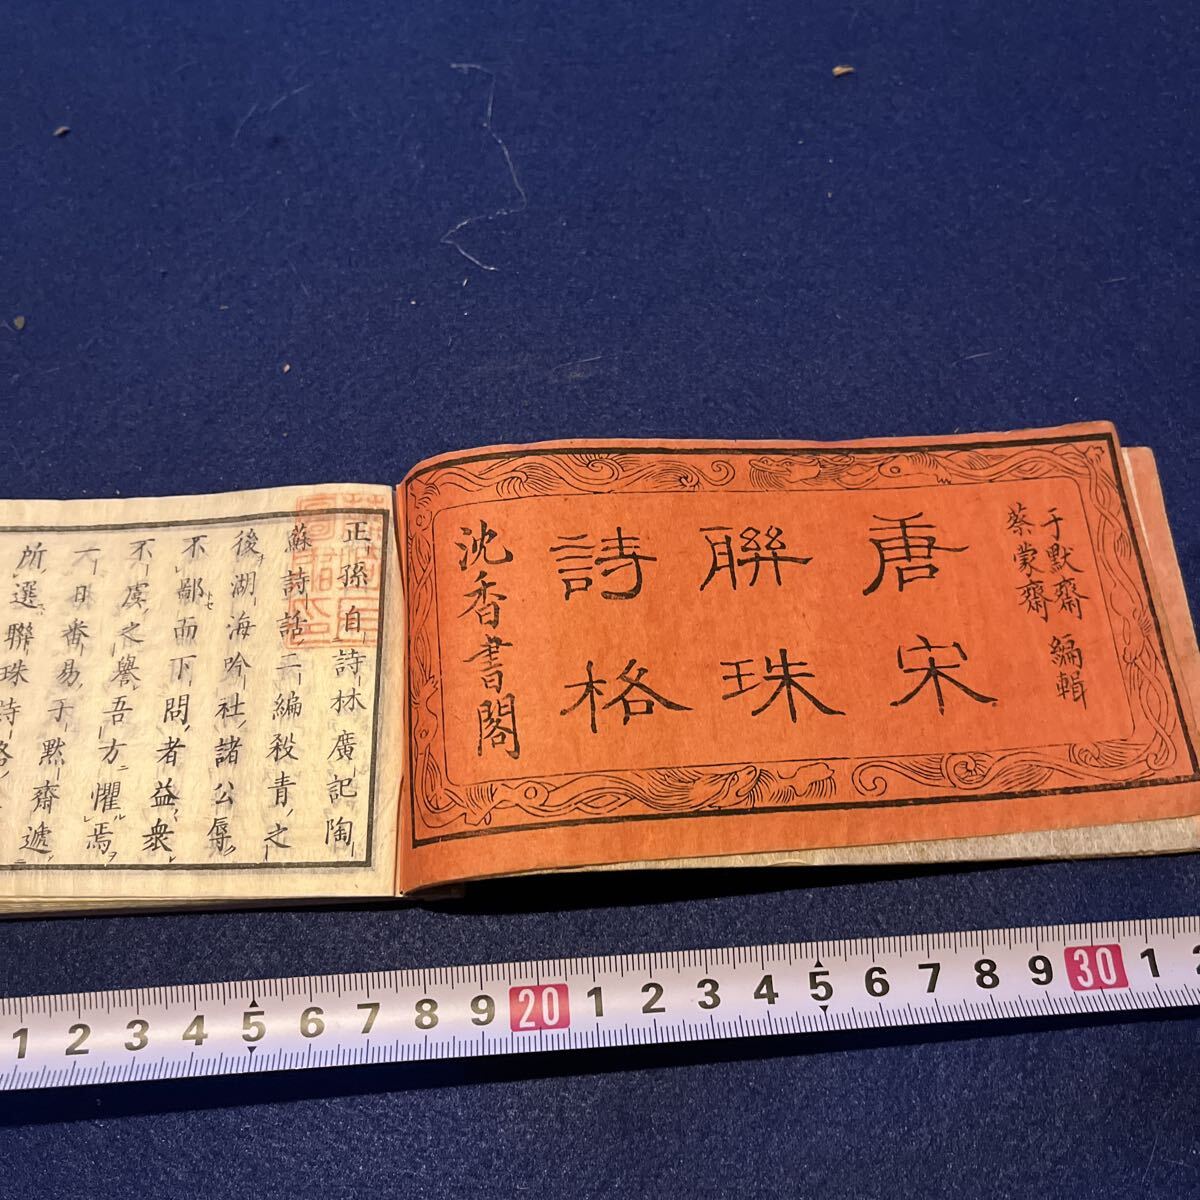 于默齋
蔡蒙齋
編輯
唐宋
聯珠
詩格
沈香書閣
正孫自詩林廣記陶
蘇詩話二編殺青之
後湖海吟社諸公辱
不鄙而下問者益衆
不虞之譽吾方懼焉
一日番易于黙齋遞
所選聯珠詩格
1 2 3 4 5 6 7 8 9 20 1 2 3 4 5 6 7 8 9 30 1 2